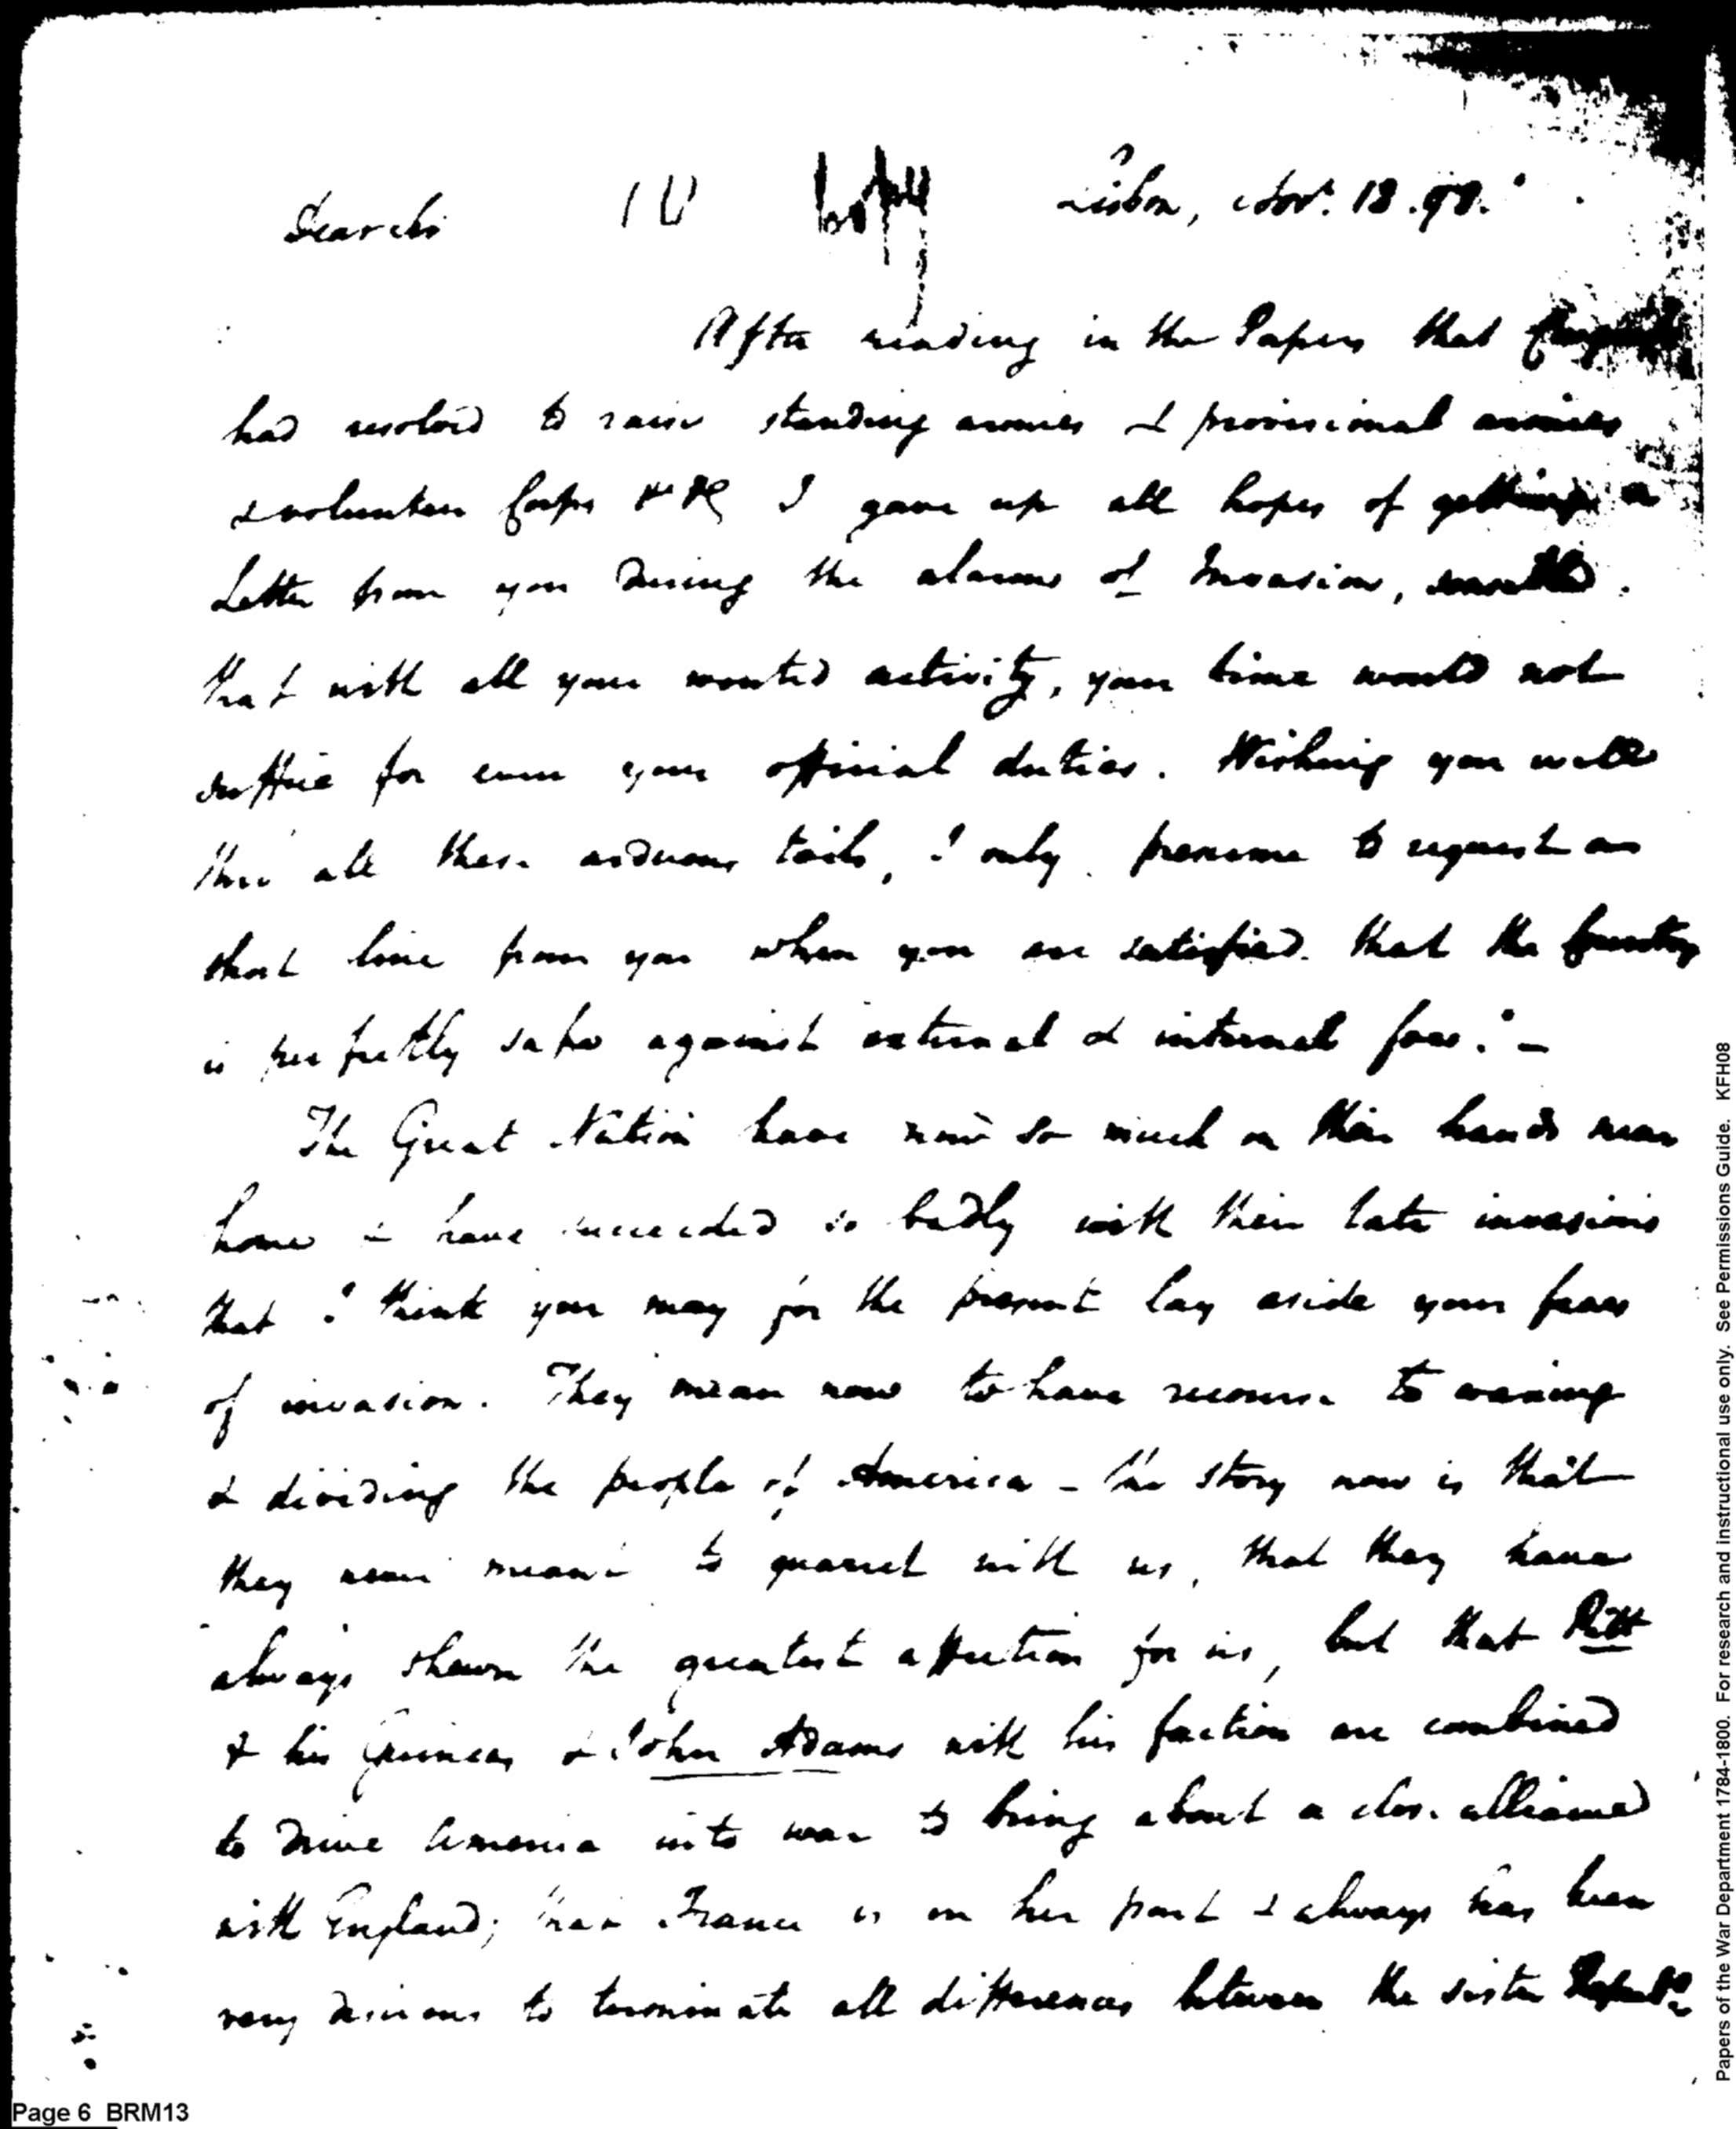 Dear Sir Copy Lisbon, Nov.r 18. 98.
After reading in the Papers that
had resolved to raise standing armies & provisional armies
& volunteer Corps &c &c I gave up all hopes of getting a
Letter from you during the alarms of Invasion,
that with all your wonted activity, your time would not
suffice for even your official duties. Wishing you well
thro' all these arduous toils, I only presume to request a
short line from you when you are satisfied that the Country
is perfectly safe against external & internal foes. —
The Great Nation have now so much on their hands near
home & have succeeded so badly with their late invasions
that I think you may for the present lay aside your fears
of invasion. They mean now to have recourse to
& dividing the people of America - the story now is that
they never meant to quarrel with us, that they have
always shewn the greatest affection for us, but that Pitt
& his Guineas & John Adams with his faction are combined
to drive America into war to bring about a close alliance
with England; that France is on her part & always has been
very desirous to terminate all differences between the sister
Page 6 BRM13
Papers of the War Department 1784-1800. For research and instructional use only. See Permissions Guide. KFH08